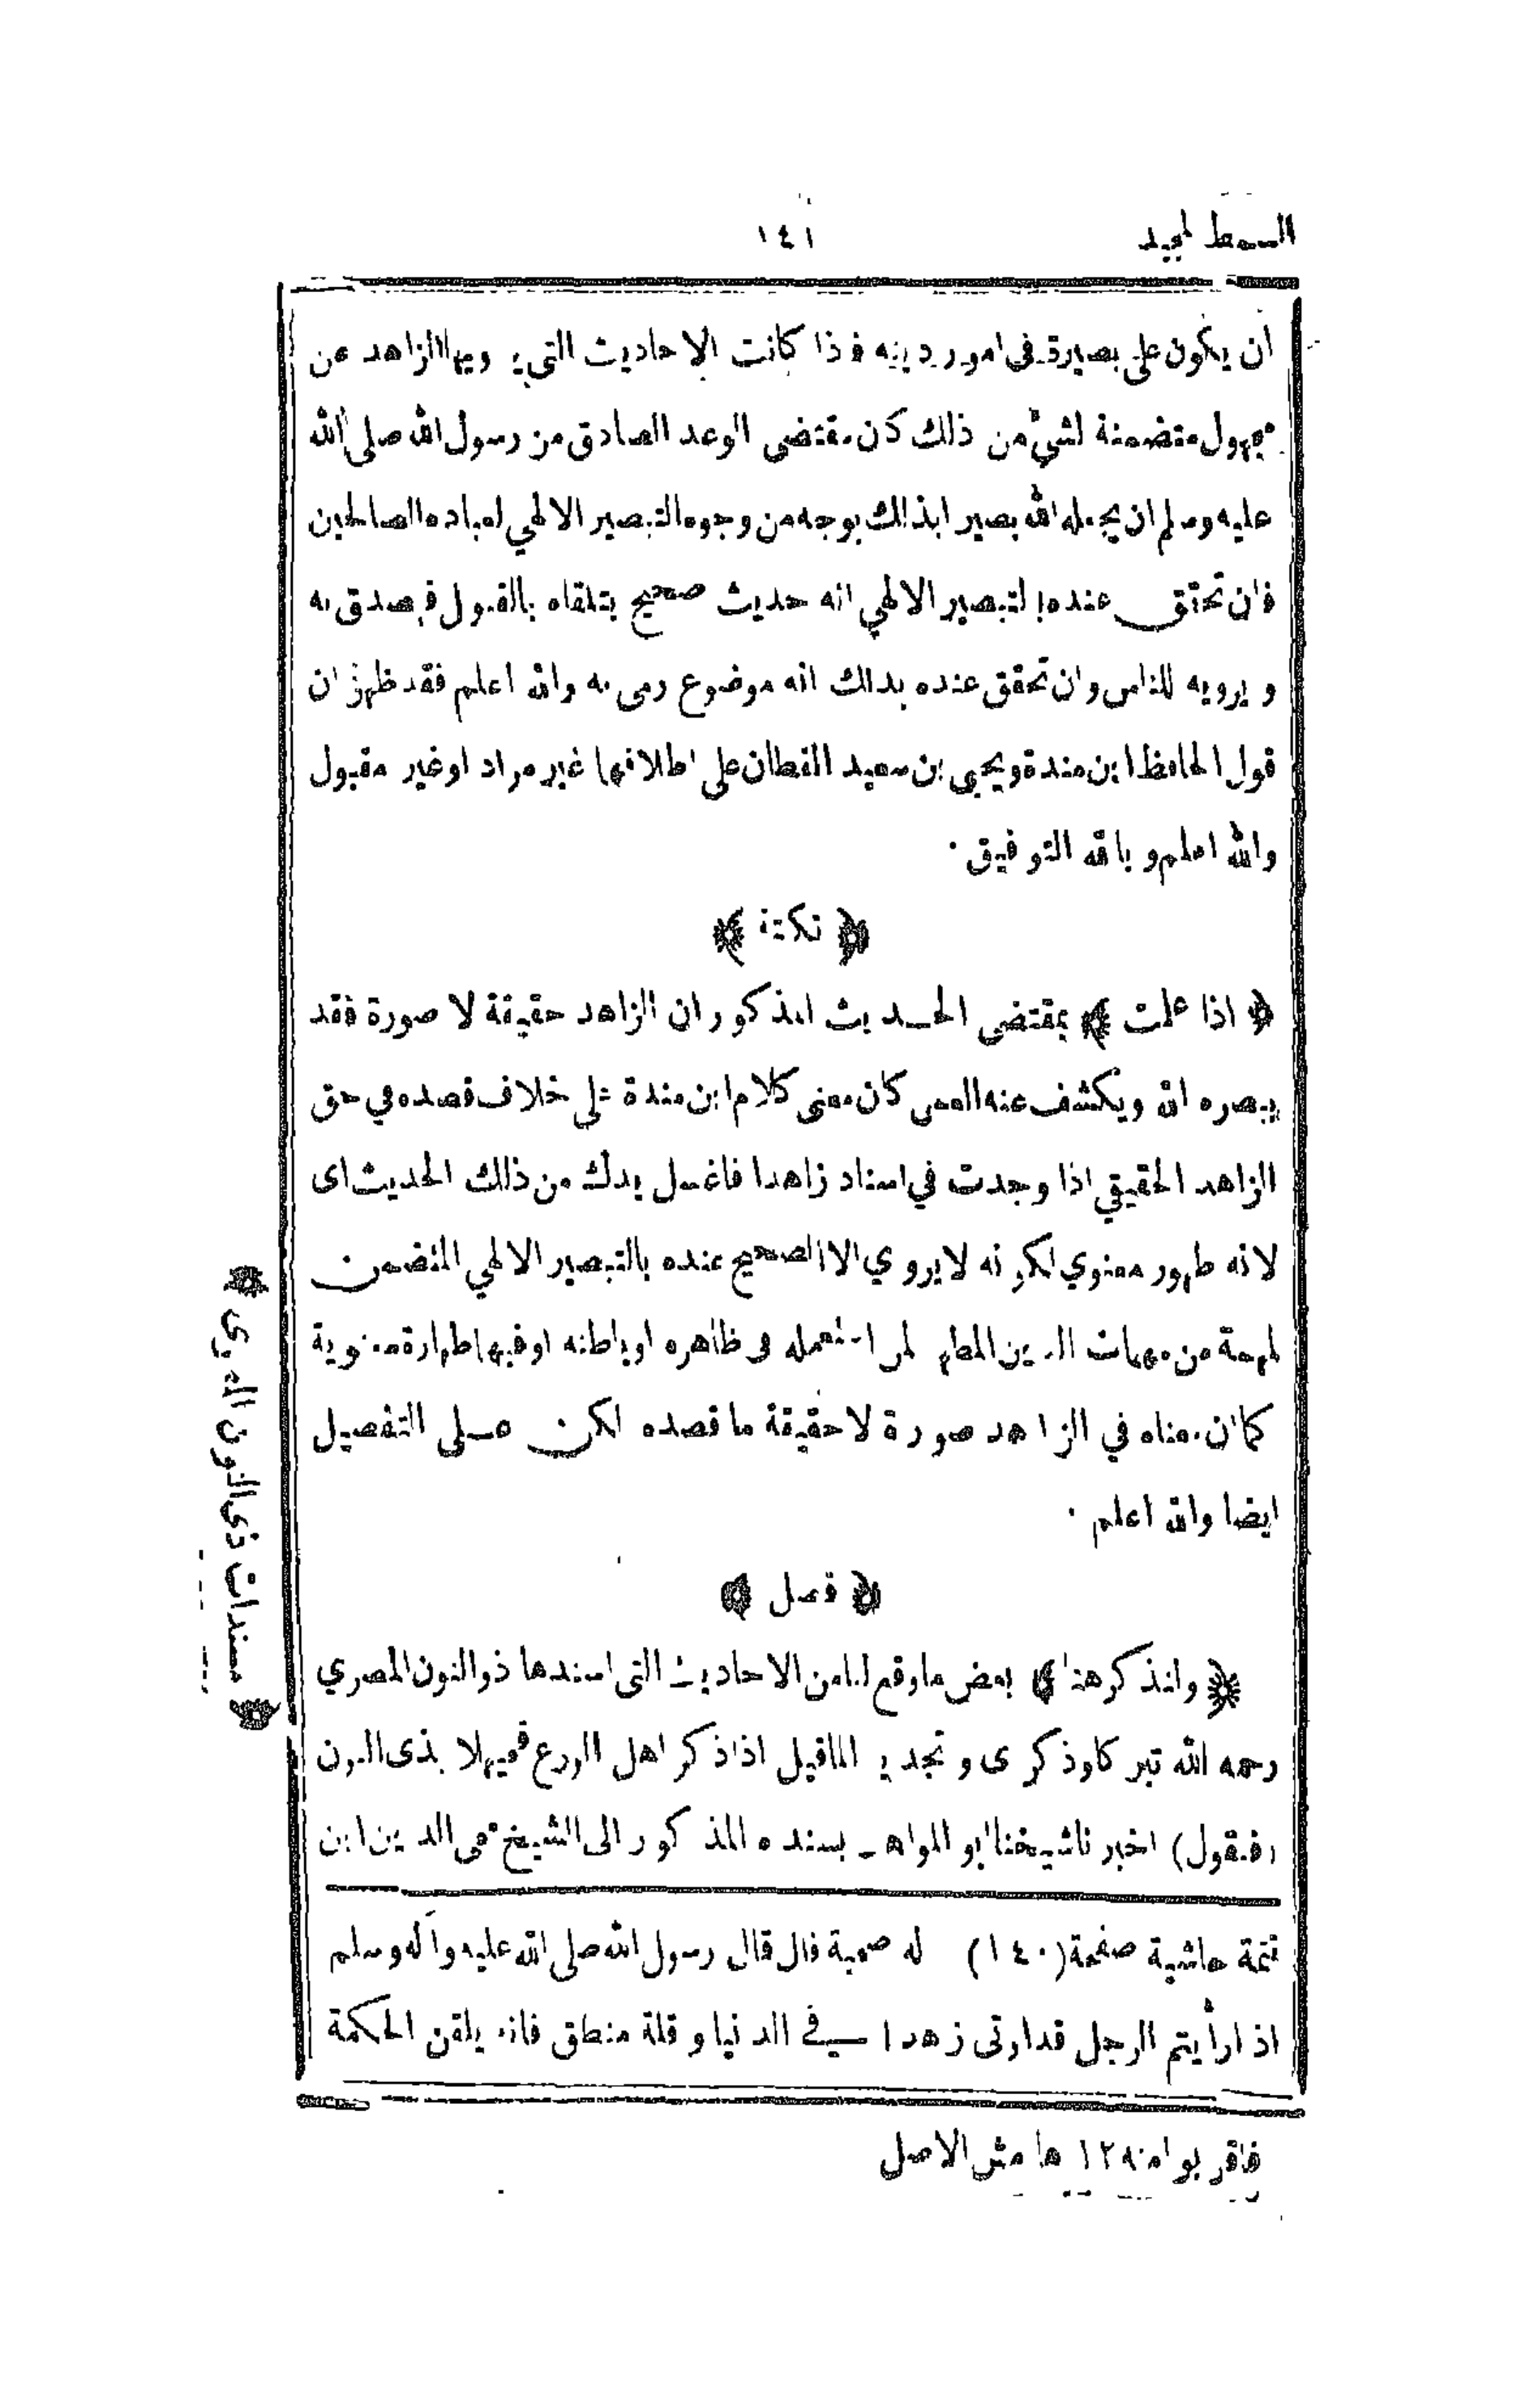 السمط المجيد
١٤١
ان يكون على بصيرة في امور دينه فاذا كانت الاحاديث التي يرويها الزاهد عن
مجهول متضمنة لشيء من ذلك كان مقتضى الوعد الصادق من رسول الله صلى الله
عليه وسلم ان يجعله الله بصيرا بذلك بوجه من وجوه التبصير الالهي لعباده الصالحين
فان تحقق عنده بالتبصير الالهي انه حديث صحيح يتلقاه بالقبول فيصدق به
و يرويه للناس وان تحقق عنده بذلك انه موضوع رمى به والله اعلم فقد ظهر ان
قول الحافظ ابن مندة ويحيى بن سعيد القطان على اطلاقهما غير مراد او غير مقبول
والله اعلم و بالله التوفيق ٠
﴿ نكتة ﴾
﴿ اذا علمت ﴾ بمقتضى الحديث المذكور ان الزاهد حقيقة لا صورة فقد
يبصره الله ويكشف عنه العمى كان معنى كلام ابن مندة على خلاف قصده في حق
الزاهد الحقيقي اذا وجدت في اسناد زاهدا فاغسل يدك من ذلك الحديث اى
لانه طهور معنوي لكونه لا يروي الا الصحيح عنده بالتبصير الالهي المتضمن
لمهمة من مهمات الدين المطهر لمن استعمله في ظاهره او باطنه او فيها طهارة معنوية
كما ان معناه في الزاهد صورة لا حقيقة ما قصده لكن على التفصيل
ايضا والله اعلم ٠
﴿ فصل ﴾
﴿ ولنذكر هنا ﴾ بعض ما وقع لنا من الاحاديث التي اسندها ذو النون المصري
رحمه الله تبركا وذكرى و تجديدا لما قيل اذا ذكر اهل الورع فحيهلا بذى النون
(فنقول) اخبرنا شيخنا ابو المواهب بسنده المذكور الى الشيخ محى الدين ابن
تتمة حاشية صفحة (١٤٠) له صحبة قال قال رسول الله صلى الله عليه وآله وسلم
اذا رأيتم الرجل قد اوتى زهدا في الدنيا و قلة منطق فانه يلقن الحكمة
فاقربوا منه ١٢ هامش الاصل
﴿ مسندات ذى النون المصرى ﴾